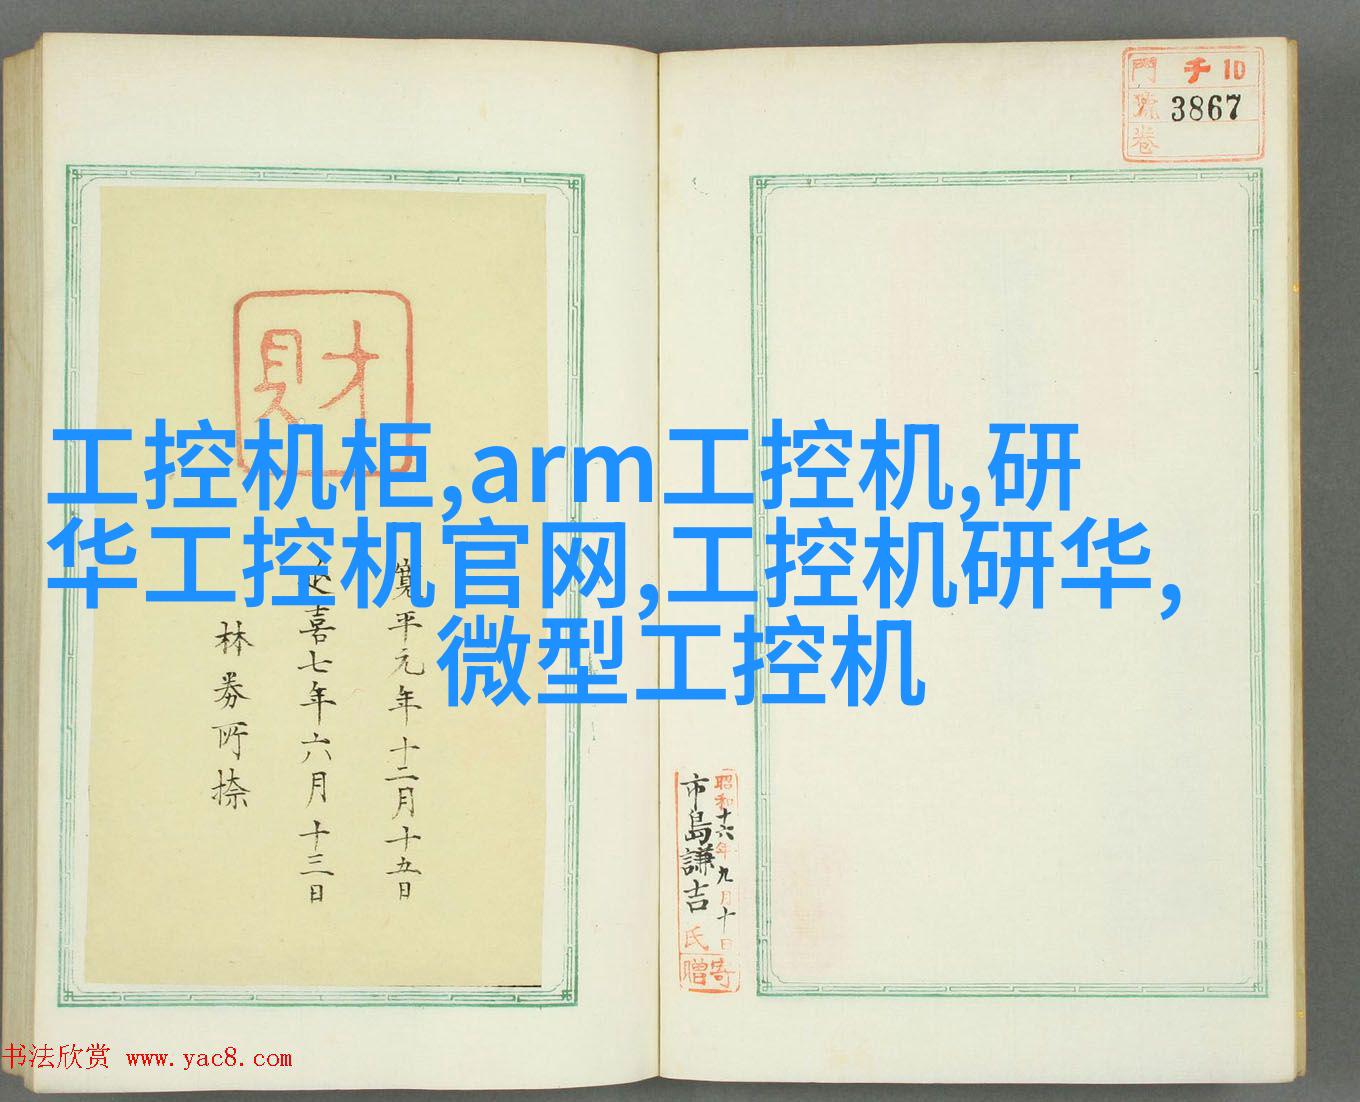 財
寛平元年十二月十五日
延喜七年六月十三日
林券所捺
工控机柜,arm工控机,研
华工控机官网,工控机研华,
微型工控机
門 チ10
號 3867
卷
昭和十六年九月十日
市島謙吉氏寄贈
书法欣赏 www.yac8.com